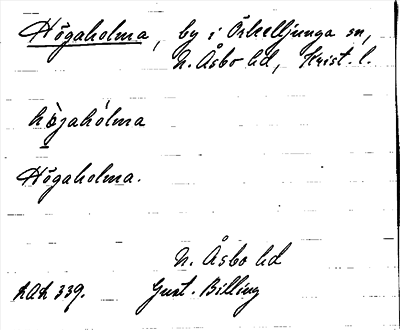 Högaholma, by i Örkelljunga sn,
N. Åsbo hd, Krist. l.
hö̀gahólma
Högaholma.
N. Åsbo hd
Gust. Billing